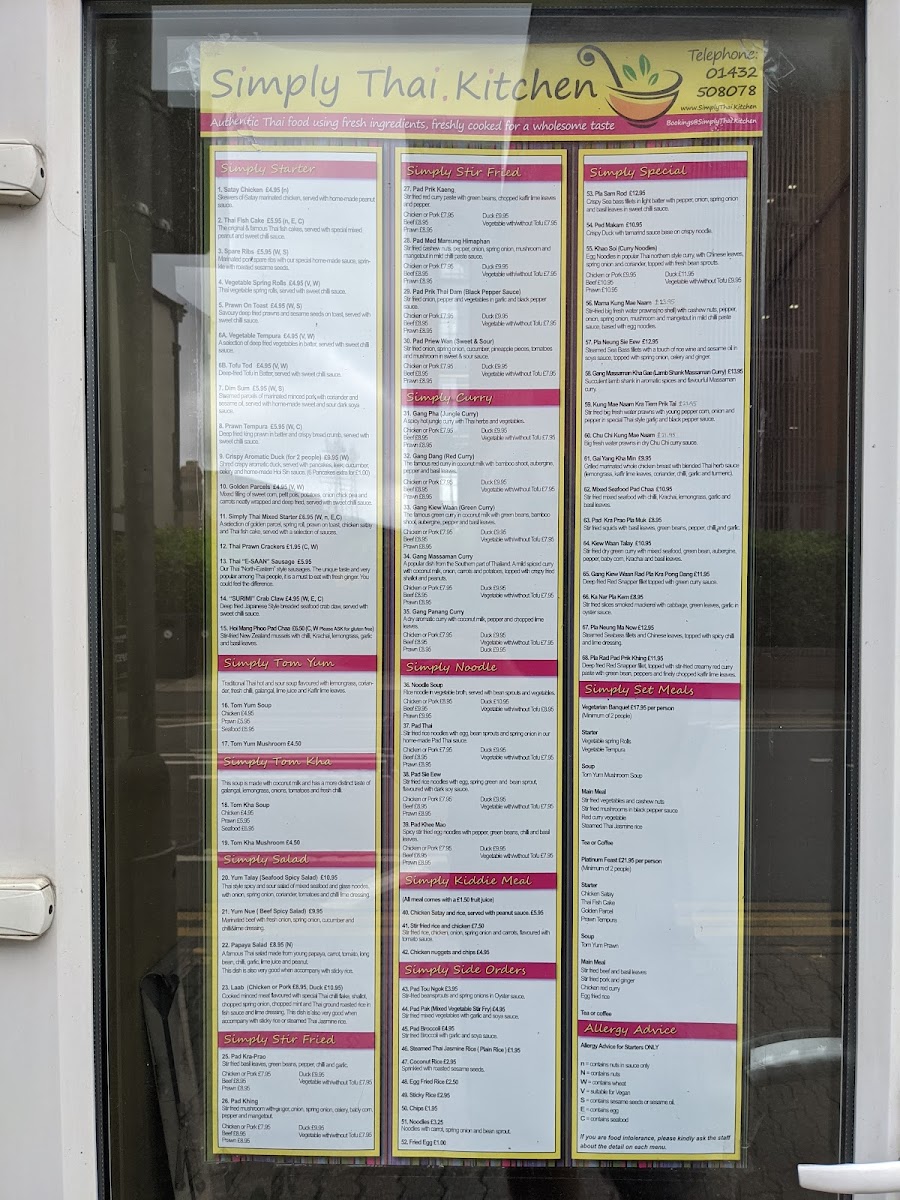 Simply Thai.Kitchen
Telephone:
01432
508078
www.SimplyThai.Kitchen
Authentic Thai food using fresh ingredients, freshly cooked for a wholesome taste
Bookings@SimplyThai.Kitchen
Simply Starter
1. Satay Chicken £4.95 (n)
Skewers of Satay marinated chicken, served with home-made peanut
sauce.
2. Thai Fish Cake £5.95 (n, E, C)
The original & famous Thai fish cakes, served with special mixed
peanut and sweet chilli sauce.
3. Spare Ribs £5.95 (W, S)
Marinated pork spare ribs with our special home-made sauce, sprin-
kle with roasted sesame seeds.
4. Vegetable Spring Rolls £4.95 (V, W)
Thai vegetable spring rolls, served with sweet chilli sauce.
5. Prawn On Toast £4.95 (W, S)
Savoury deep fried prawns and sesame seeds on toast, served with
sweet chilli sauce.
6A. Vegetable Tempura £4.95 (V, W)
A selection of deep fried vegetables in batter, served with sweet chilli
sauce.
6B. Tofu Tod £4.95 (V, W)
Deep-fried Tofu in Batter, served with sweet chilli sauce.
7. Dim Sum £5.95 (W, S)
Steamed parcels of marinated minced pork with coriander and
sesame oil, served with home-made sweet and sour dark soya
sauce.
8. Prawn Tempura £5.95 (W, C)
Deep fried king prawn in batter and crispy bread crumb, served with
sweet chilli sauce.
9. Crispy Aromatic Duck (for 2 people) £9.95 (W)
Shred crispy aromatic duck, served with pancakes, leek, cucumber,
celery and home-made Hoi Sin sauce. (6 Pancakes extra for £1.00)
10. Golden Parcels £4.95 (V, W)
Mixed filling of sweet corn, petit pois, potatoes, onion chick pea and
carrots neatly wrapped and deep fried, served with sweet chilli sauce.
11. Simply Thai Mixed Starter £6.95 (W, n, E,C)
A selection of golden parcel, spring roll, prawn on toast, chicken satay
and Thai fish cake, served with a selection of sauces.
12. Thai Prawn Crackers £1.95 (C, W)
13. Thai "E-SAAN" Sausage £5.95
Our Thai "North-Eastern" style sausages. The unique taste and very
popular among Thai people, it is a must to eat with fresh ginger. You
could feel the difference.
14. "SURIMI" Crab Claw £4.95 (W, E, C)
Deep fried Japanese Style breaded seafood crab claw, served with
sweet chilli sauce.
15. Hoi Mang Phoo Pad Chaa £6.50 (C, W Please ASK for gluten free)
Stir-fried New Zealand mussels with chilli, Krachai, lemongrass, garlic
and basil leaves.
Simply Tom Yum
Traditional Thai hot and sour soup flavoured with lemongrass, corian-
der, fresh chilli, galangal, lime juice and Kaffir lime leaves.
16. Tom Yum Soup
Chicken £4.95
Prawn £5.95
Seafood £6.95
17. Tom Yum Mushroom £4.50
Simply Tom Kha
This soup is made with coconut milk and has a more distinct taste of
galangal, lemongrass, onions, tomatoes and fresh chilli.
18. Tom Kha Soup
Chicken £4.95
Prawn £5.95
Seafood £6.95
19. Tom Kha Mushroom £4.50
Simply Salad
20. Yum Talay (Seafood Spicy Salad) £10.95
Thai style spicy and sour salad of mixed seafood and glass noodles,
with onion, spring onion, coriander, tomatoes and chilli lime dressing.
21. Yum Nue ( Beef Spicy Salad) £9.95
Marinated beef with fresh onion, spring onion, cucumber and
chilli&lime dressing.
22. Papaya Salad £8.95 (N)
A famous Thai salad made from young papaya, carrot, tomato, long
bean, chilli, garlic, lime juice and peanut.
This dish is also very good when accompany with sticky rice.
23. Laab (Chicken or Pork £8.95, Duck £10.95)
Cooked minced meat flavoured with special Thai chilli flake, shallot,
chopped spring onion, chopped mint and Thai ground roasted rice in
fish sauce and lime dressing. This dish is also very good when
accompany with sticky rice or steamed Thai Jasmine rice.
Simply Stir Fried
25. Pad Kra-Prao
Stir fried basil leaves, green beans, pepper, chilli and garlic.
Chicken or Pork £7.95 Duck £9.95
Beef £8.95 Vegetable with/without Tofu £7.95
Prawn £8.95
26. Pad Khing
Stir fried mushroom with ginger, onion, spring onion, celery, baby corn,
pepper and mangetout.
Chicken or Pork £7.95 Duck £9.95
Beef £8.95 Vegetable with/without Tofu £7.95
Prawn £8.95
Simply Stir Fried
27. Pad Prik Kaeng
Stir fried red curry paste with green beans, chopped kaffir lime leaves
and pepper.
Chicken or Pork £7.95 Duck £9.95
Beef £8.95 Vegetable with/without Tofu £7.95
Prawn £8.95
28. Pad Med Mamung Himaphan
Stir fried cashew nuts, pepper, onion, spring onion, mushroom and
mangetout in mild chilli paste sauce.
Chicken or Pork £7.95 Duck £9.95
Beef £8.95 Vegetable with/without Tofu £7.95
Prawn £8.95
29. Pad Prik Thai Dam (Black Pepper Sauce)
Stir fried onion, pepper and vegetables in garlic and black pepper
sauce.
Chicken or Pork £7.95 Duck £9.95
Beef £8.95 Vegetable with/without Tofu £7.95
Prawn £8.95
30. Pad Priew Wan (Sweet & Sour)
Stir fried onion, spring onion, cucumber, pineapple pieces, tomatoes
and mushroom in sweet & sour sauce.
Chicken or Pork £7.95 Duck £9.95
Beef £8.95 Vegetable with/without Tofu £7.95
Prawn £8.95
Simply Curry
31. Gang Pha (Jungle Curry)
A spicy hot jungle curry with Thai herbs and vegetables.
Chicken or Pork £7.95 Duck £9.95
Beef £8.95 Vegetable with/without Tofu £7.95
Prawn £8.95
32. Gang Dang (Red Curry)
The famous red curry in coconut milk with bamboo shoot, aubergine,
pepper and basil leaves.
Chicken or Pork £7.95 Duck £9.95
Beef £8.95 Vegetable with/without Tofu £7.95
Prawn £8.95
33. Gang Kiew Waan (Green Curry)
The famous green curry in coconut milk with green beans, bamboo
shoot, aubergine, pepper and basil leaves.
Chicken or Pork £7.95 Duck £9.95
Beef £8.95 Vegetable with/without Tofu £7.95
Prawn £8.95
34. Gang Massaman Curry
A popular dish from the Southern part of Thailand. A mild spiced curry
with coconut milk, onion, carrots and potatoes, topped with crispy fried
shallot and peanuts.
Chicken or Pork £7.95 Duck £9.95
Beef £8.95 Vegetable with/without Tofu £7.95
Prawn £8.95
35. Gang Panang Curry
A dry aromatic curry with coconut milk, pepper and chopped lime
leaves.
Chicken or Pork £7.95 Duck £9.95
Beef £8.95 Vegetable with/without Tofu £7.95
Prawn £8.95
Simply Noodle
36. Noodle Soup
Rice noodle in vegetable broth, served with bean sprouts and vegetables.
Chicken or Pork £8.95 Duck £10.95
Beef £9.95 Vegetable with/without Tofu £8.95
Prawn £9.95
37. Pad Thai
Stir fried rice noodles with egg, bean sprouts and spring onion in our
home-made Pad Thai sauce
Chicken or Pork £7.95 Duck £9.95
Beef £8.95 Vegetable with/without Tofu £7.95
Prawn £8.95
38. Pad Sie Eew
Stir fried rice noodles with egg, spring green and bean sprout,
flavoured with dark soy sauce.
Chicken or Pork £7.95 Duck £9.95
Beef £8.95 Vegetable with/without Tofu £7.95
Prawn £8.95
39. Pad Khee Mao
Spicy stir fried egg noodles with pepper, green beans, chilli and basil
leaves.
Chicken or Pork £7.95 Duck £9.95
Beef £8.95 Vegetable with/without Tofu £7.95
Prawn £8.95
Simply Kiddie Meal
(All meal comes with a £1.50 fruit juice)
40. Chicken Satay and rice, served with peanut sauce. £5.95
41. Stir fried rice and chicken £7.50
Stir fried rice, chicken, onion, spring onion and carrots, flavoured with
tomato sauce.
42. Chicken nuggets and chips £4.95
Simply Side Orders
43. Pad Tou Ngok £3.95
Stir-fried beansprouts and spring onions in Oyster sauce.
44. Pad Pak (Mixed Vegetable Stir Fry) £4.95
Stir fried mixed vegetables with garlic and soya sauce.
45. Pad Broccoli £4.95
Stir fried Broccoli with garlic and soya sauce.
46. Steamed Thai Jasmine Rice ( Plain Rice ) £1.95
47. Coconut Rice £2.95
Sprinkled with roasted sesame seeds.
48. Egg Fried Rice £2.50
49. Sticky Rice £2.95
50. Chips £1.95
51. Noodles £3.25
Noodles with carrot, spring onion and bean sprout.
52. Fried Egg £1.00
Simply Special
53. Pla Sam Rod £12.95
Crispy Sea bass fillets in light batter with pepper, onion, spring onion
and basil leaves in sweet chilli sauce.
54. Ped Makam £10.95
Crispy Duck with tamarind sauce base on crispy noodle.
55. Khao Soi (Curry Noodles)
Egg Noodles in popular Thai northern style curry, with Chinese leaves,
spring onion and coriander, topped with fresh bean sprouts.
Chicken or Pork £9.95 Duck £11.95
Beef £10.95 Vegetable with/without Tofu £9.95
Prawn £10.95
56. Mama Kung Mae Naam
Stir-fried big fresh water prawns(no shell) with cashew nuts, pepper,
onion, spring onion, mushroom and mangetout in mild chilli paste
sauce, based with egg noodles.
57. Pla Neung Sie Eew £12.95
Steamed Sea Bass fillets with a touch of rice wine and sesame oil in
soya sauce, topped with spring onion, celery and ginger.
58. Gang Massaman Kha Gae (Lamb Shank Massaman Curry) £13.95
Succulent lamb shank in aromatic spices and flavourful Massaman
curry.
59. Kung Mae Naam Kra Tiem Prik Tai
Stir fried big fresh water prawns with young pepper corn, onion and
pepper in special Thai style garlic and black pepper sauce.
60. Chu Chi Kung Mae Naam
Big fresh water prawns in dry Chu Chi curry sauce.
61. Gai Yang Kha Min £9.95
Grilled marinated whole chicken breast with blended Thai herb sauce
(lemongrass, kaffir lime leaves, coriander, chilli, garlic and turmeric).
62. Mixed Seafood Pad Chaa £10.95
Stir fried mixed seafood with chilli, Krachai, lemongrass, garlic and
basil leaves.
63. Pad Kra Prao Pla Muk £8.95
Stir fried squids with basil leaves, green beans, pepper, chilli and garlic
64. Kiew Waan Talay £10.95
Stir fried dry green curry with mixed seafood, green bean, aubergine,
pepper, baby corn, Krachai and basil leaves.
65. Gang Kiew Waan Rad Pla Kra Pong Dang £11.95
Deep fried Red Snapper fillet topped with green curry sauce.
66. Ka Nar Pla Kem £8.95
Stir fried slices smoked mackerel with cabbage, green leaves, garlic in
oyster sauce.
67. Pla Neung Ma Now £12.95
Steamed Seabass fillets and Chinese leaves, topped with spicy chilli
and lime dressing.
68. Pla Rad Pad Prik Khing £11.95
Deep fried Red Snapper fillet, topped with stir-fried creamy red curry
paste with green bean, peppers and finely chopped kaffir lime leaves.
Simply Set Meals
Vegetarian Banquet £17.95 per person
(Minimum of 2 people)
Starter
Vegetable spring Rolls
Vegetable Tempura
Soup
Tom Yum Mushroom Soup
Main Meal
Stir fried vegetables and cashew nuts
Stir fried mushrooms in black pepper sauce
Red curry vegetable
Steamed Thai Jasmine rice
Tea or Coffee
Platinum Feast £21.95 per person
(Minimum of 2 people)
Starter
Chicken Satay
Thai Fish Cake
Golden Parcel
Prawn Tempura
Soup
Tom Yum Prawn
Main Meal
Stir fried beef and basil leaves
Stir fried pork and ginger
Chicken red curry
Egg fried rice
Tea or coffee
Allergy Advice
Allergy Advice for Starters ONLY
n = contains nuts in sauce only
N = contains nuts
W = contains wheat
V = suitable for Vegan
S = contains sesame seeds or sesame oil.
E = contains egg
C = contains seafood
If you are food intolerance, please kindly ask the staff
about the detail on each menu.